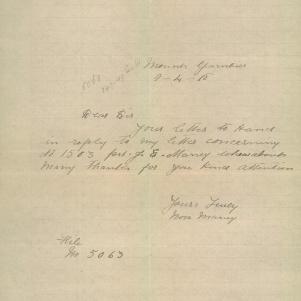 5063
Mount Gambier
9-4-15
Dear Sir
Your letter to Hand
in reply to my letter concerning
No 1503 Pvt. J. E. Massey whereabouts
Many Thanks for your kind attention
Yours Truly
File
No 5063